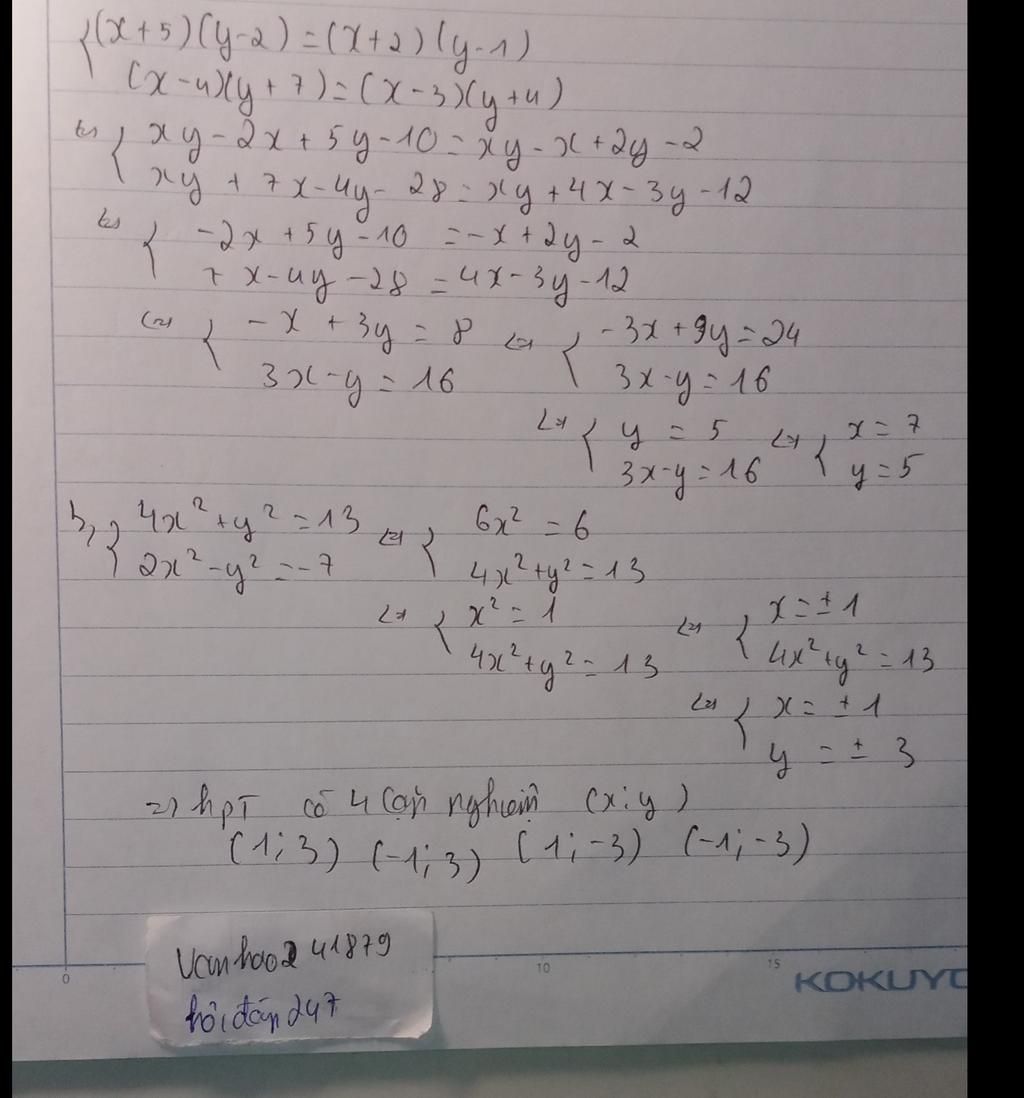 (x+5)(y-2)=(x+2)(y-1)
(x-4)(y+7)=(x-3)(y+4)
<=> { xy-2x+5y-10=xy-x+2y-2
xy+7x-4y-28=xy+4x-3y-12
<=> { -2x+5y-10=-x+2y-2
7x-4y-28=4x-3y-12
<=> { -x+3y=8 <=> { -3x+9y=24
3x-y=16 3x-y=16
<=> { y=5 <=> { x=7
3x-y=16 y=5
b, { 4x²+y²=13 <=> { 6x²=6
2x²-y²=-7 4x²+y²=13
<=> { x²=1 <=> { x=±1
4x²+y²=13 4x²+y²=13
<=> { x=±1
y=±3
=> hpT có 4 cặp nghiệm (x;y)
(1;3) (-1;3) (1;-3) (-1;-3)
Vanhao241879
hỏi đáp 247
0 10 15
KOKUYO